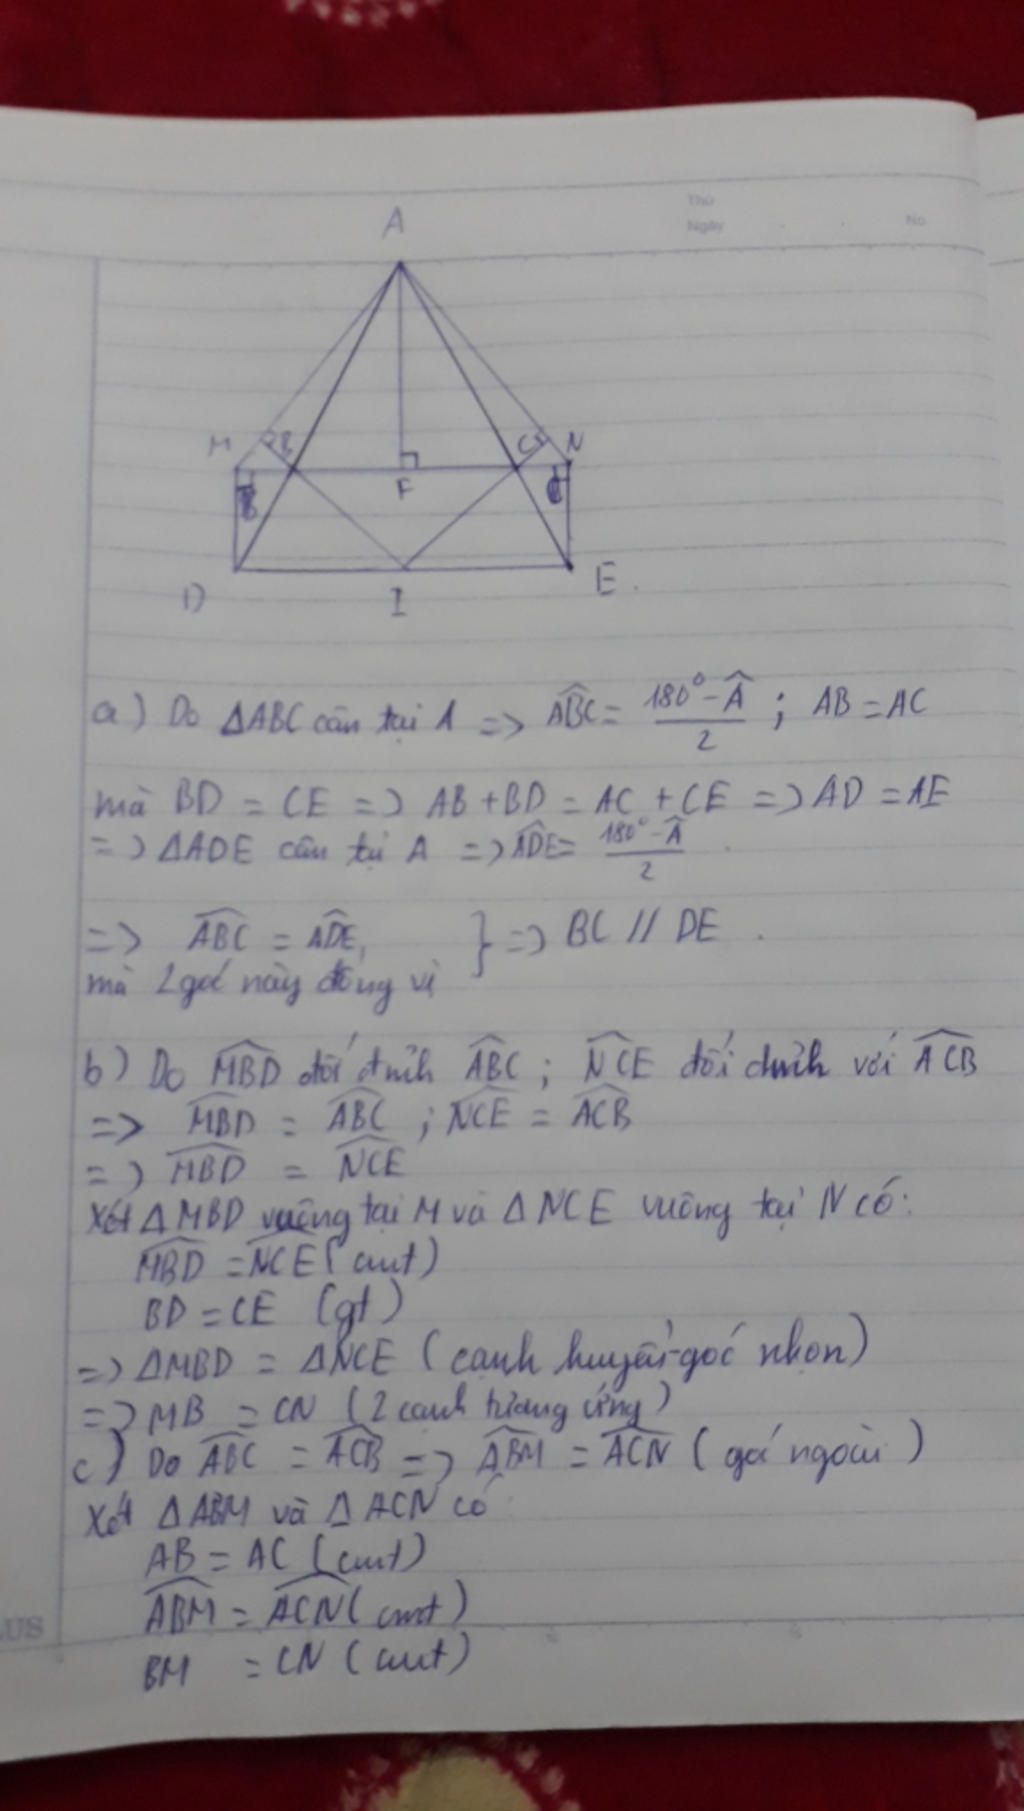 Thứ
Ngày No.
A
M B C N
F
D I E
a) Do ΔABC cân tại A => \widehat{ABC} = \frac{180° - \widehat{A}}{2} ; AB = AC
mà BD = CE => AB + BD = AC + CE => AD = AE
=> ΔADE cân tại A => \widehat{ADE} = \frac{180° - \widehat{A}}{2}
=> \widehat{ABC} = \widehat{ADE} } => BC // DE
mà 2 góc này đồng vị
b) Do \widehat{MBD} đối đỉnh \widehat{ABC} ; \widehat{NCE} đối đỉnh với \widehat{ACB}
=> \widehat{MBD} = \widehat{ABC} ; \widehat{NCE} = \widehat{ACB}
=> \widehat{MBD} = \widehat{NCE}
Xét ΔMBD vuông tại M và ΔNCE vuông tại N có:
\widehat{MBD} = \widehat{NCE} (cmt)
BD = CE (gt)
=> ΔMBD = ΔNCE (cạnh huyền-góc nhọn)
=> MB = CN (2 cạnh tương ứng)
c) Do \widehat{ABC} = \widehat{ACB} => \widehat{ABM} = \widehat{ACN} (góc ngoài)
Xét ΔABM và ΔACN có
AB = AC (cmt)
\widehat{ABM} = \widehat{ACN} (cmt)
BM = CN (cmt)